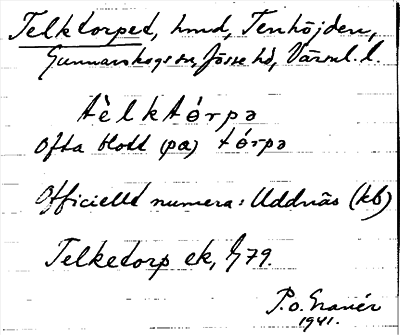 Telktorpet, hmd, Tenhöjden,
Gunnarskogs sn, Jösse hd, Värml. l.
tèlktórpə
Ofta blott (på) tórpə
Officiellt numera: Uddnäs (kb)
Telketorp ek, 79.
P.O. Granér
1941.